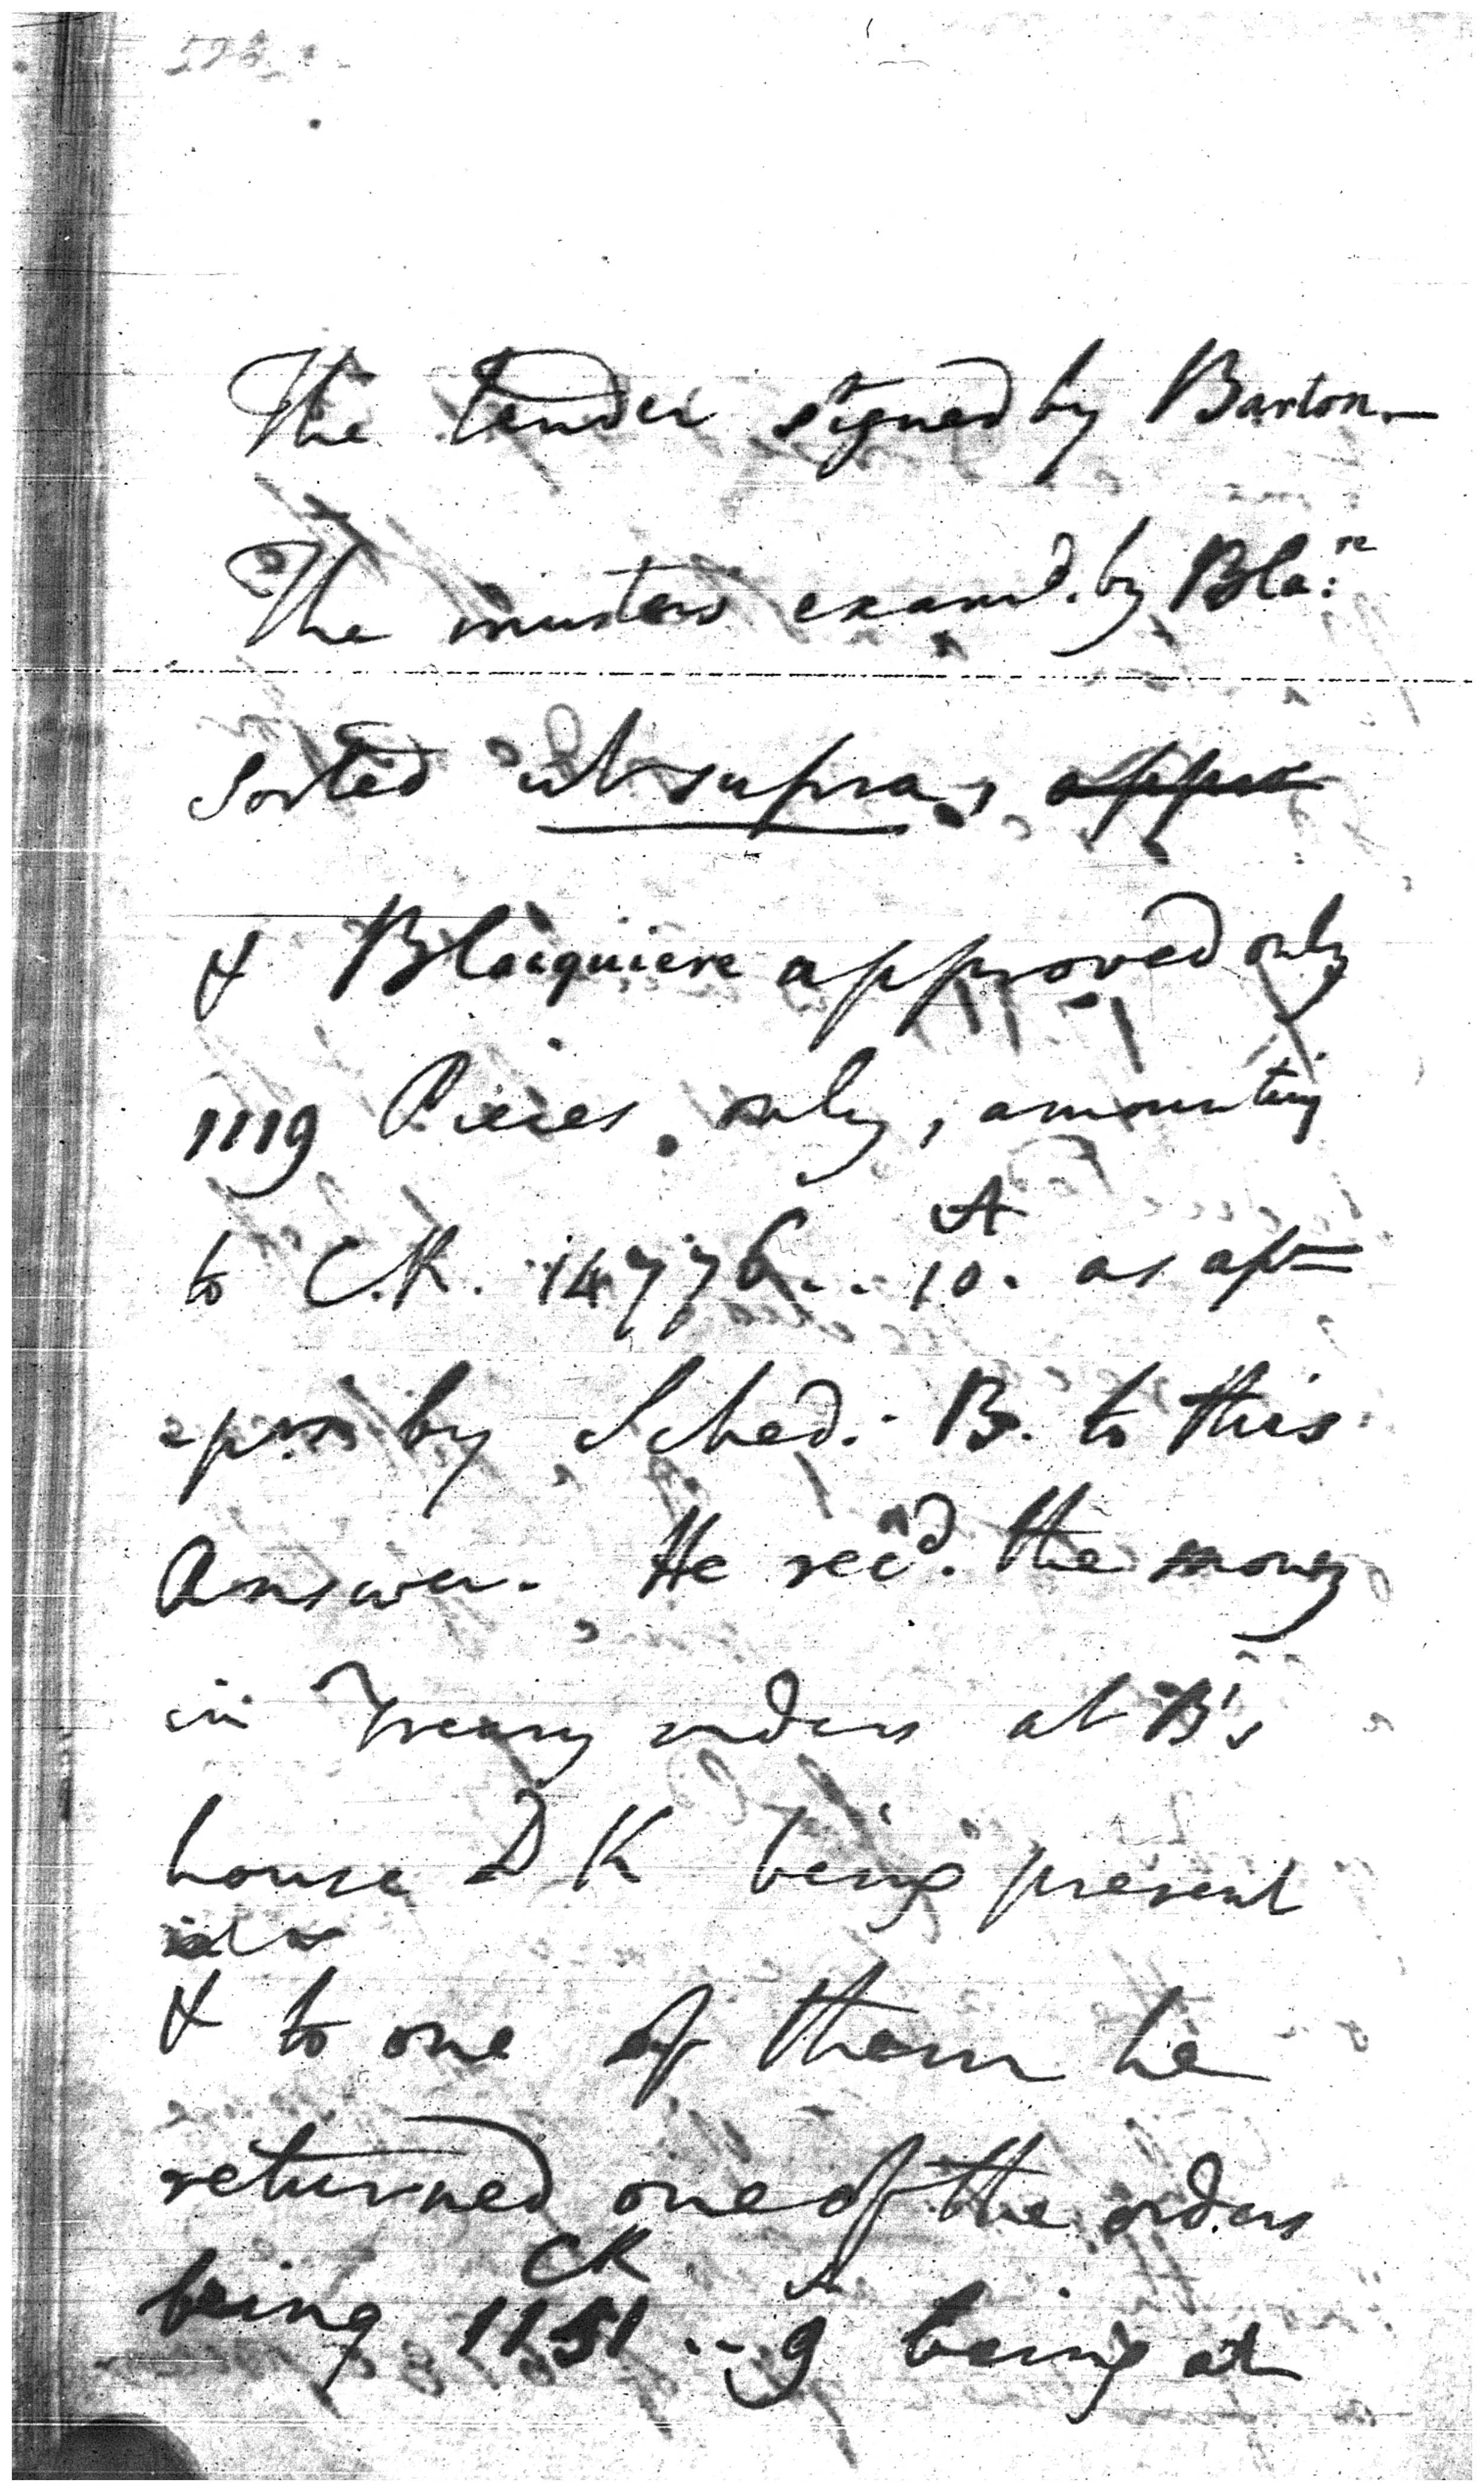 The tender signed by Barton.—
The musters examd. by Bla:re
Sorted ut supra,
& Blaiquiere approved only
1119 Pieces only, amounting
to C.R. 14776 .. 10. A as ap=
=pears by Sched. B. to this
Answer. He recd. the money
in Treasy orders at B's
house D K being present
& to one of them he
returned one of the orders
being CR 1151 .. 9 A being at